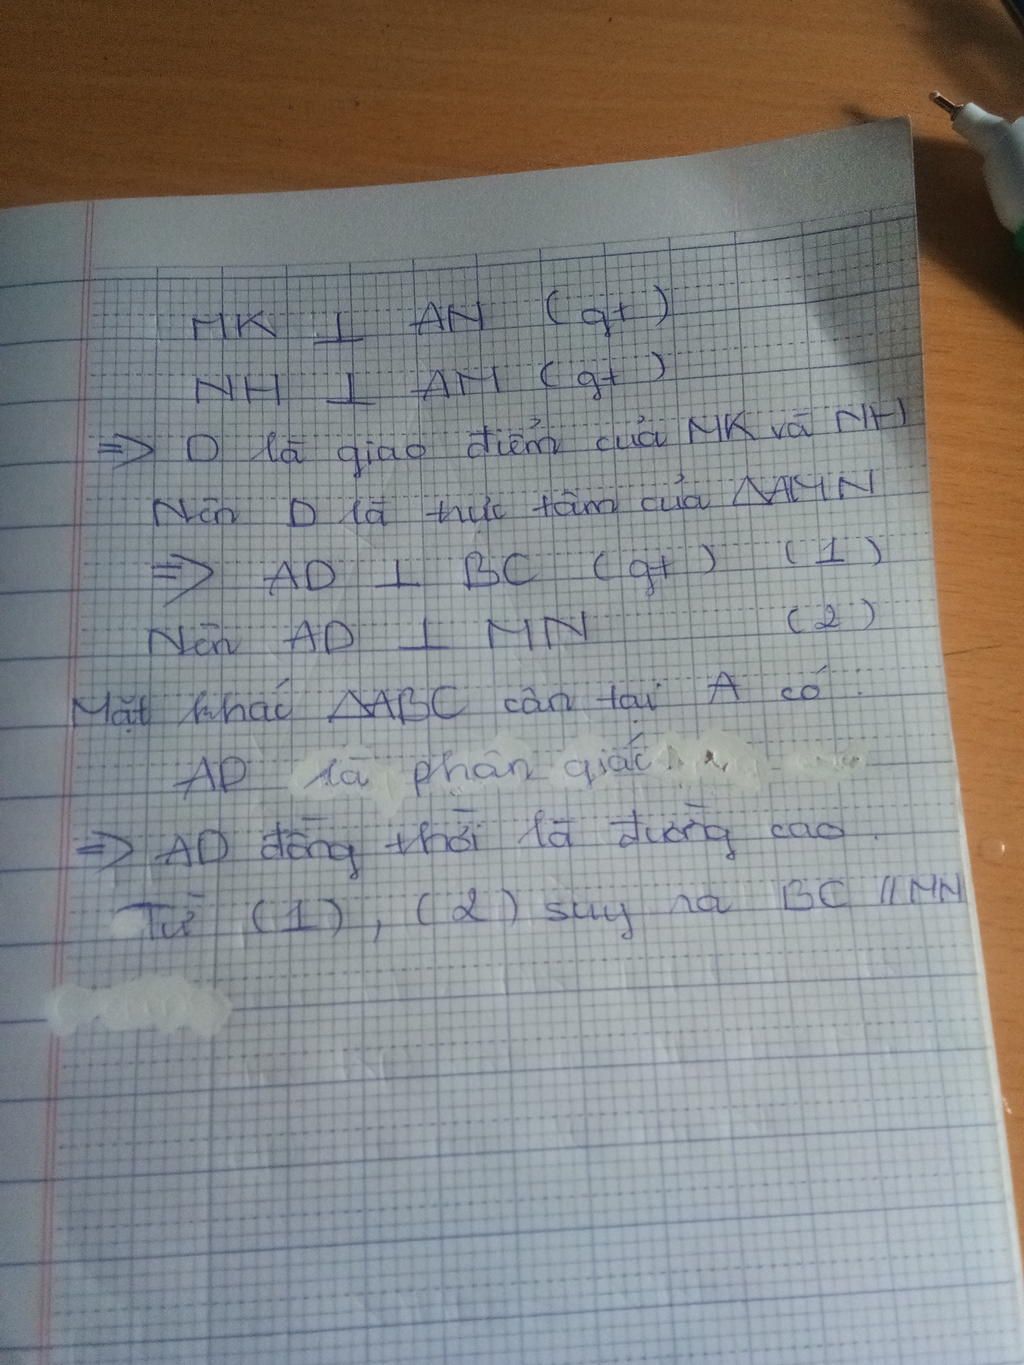 MK ⊥ AN (gt)
NH ⊥ AM (gt)
=> D là giao điểm của MK và NH
Nên D là trực tâm của ΔAMN
=> AD ⊥ BC (gt) (1)
Nên AD ⊥ MN (2)
Mặt khác ΔABC cân tại A có:
AD là phân giác
=> AD đồng thời là đường cao.
Từ (1), (2) suy ra BC // MN